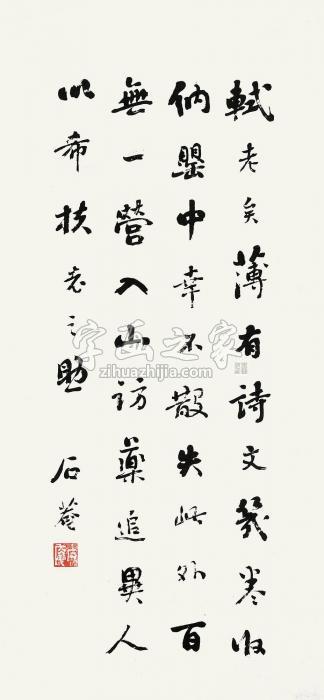 軾老矣薄有詩文幾卷收
納罌中幸不散失此外百
無一營入山訪藥追異人
以希扶老之助
石菴
字画之家
zihuazhijia.com